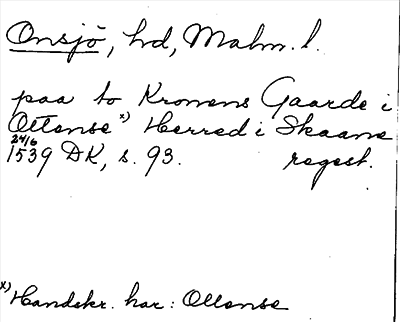 Onsjö, hd, Malm. l.
paa to Kronens Gaarde i
Ottense x) Herred i Skaane
24/6
1539 DK, s. 93. regest.
x) Handskr. har: Ollense